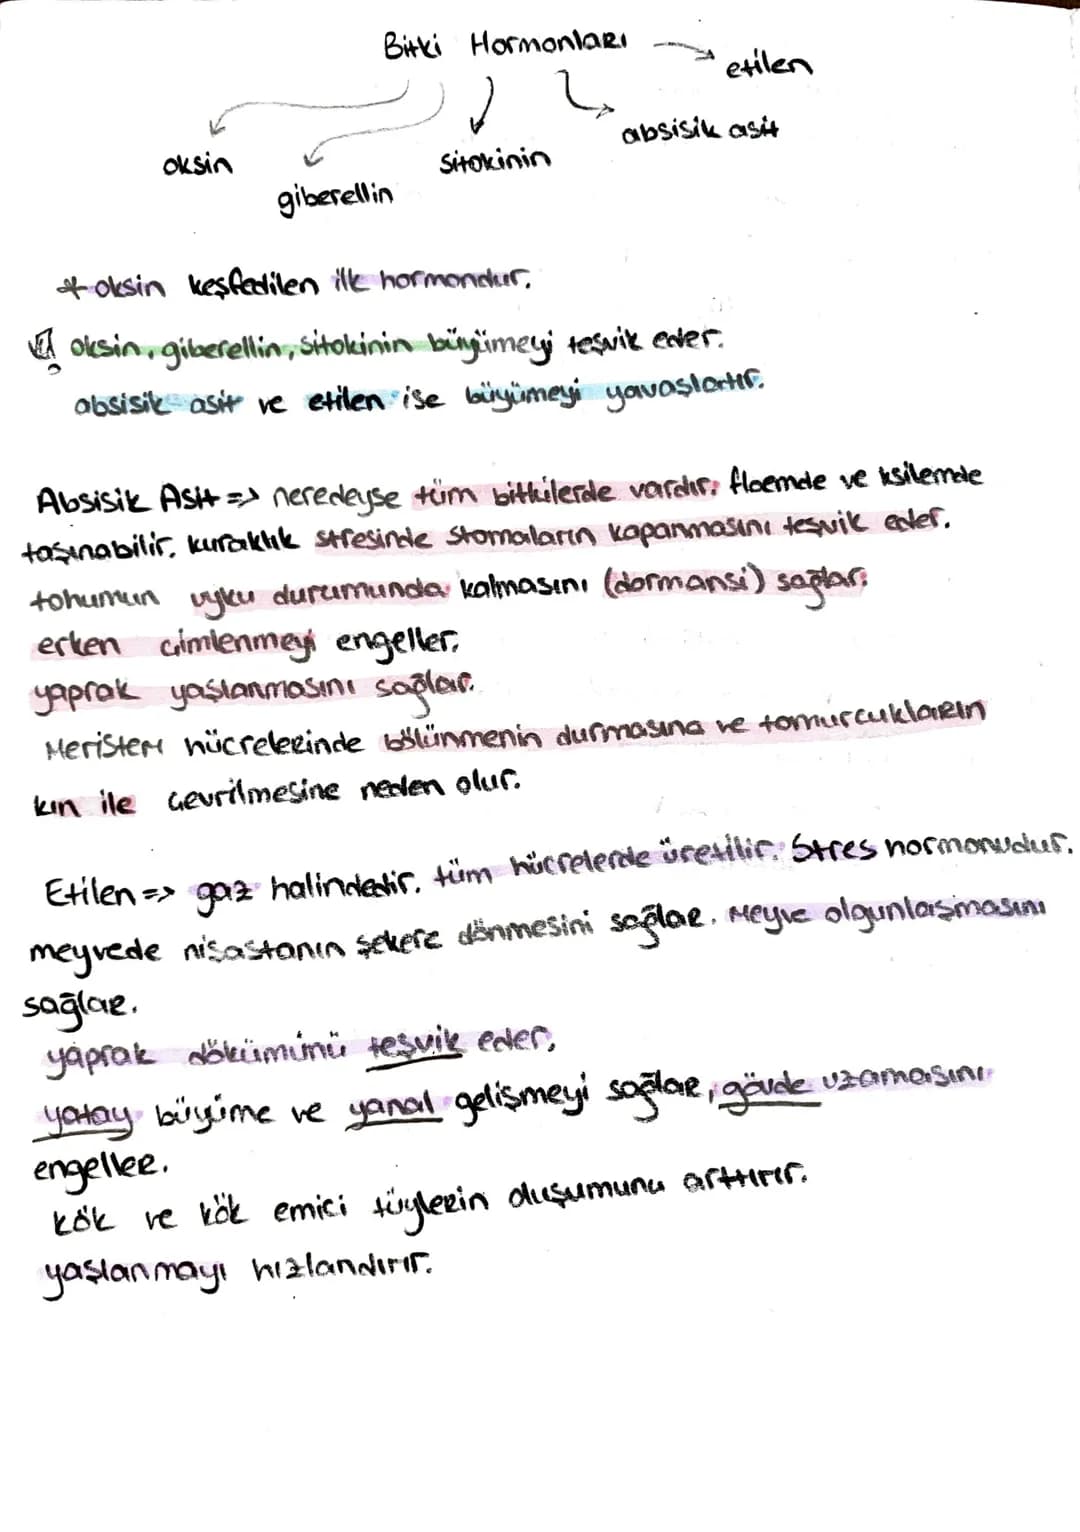 Bitki Hormonları
etilen
absisik asit
oksin
sitokinin
giberellin
* oksin keşfedilen ilk hormondur.
oksin, giberellin, sitokinin büyümeyi teşvik eder.
absisik asit ve etilen ise büyümeyi yavaşlatır.
Absisik Asit => neredeyse tüm bitkilerde vardır. floemde ve ksilemde
taşınabilir. kuraklık stresinde stomaların kapanmasını teşvik eder.
tohumun uyku durumunda kalmasını (dormansi) sağlar.
erken çimlenmeyi engeller.
yaprak yaşlanmasını sağlar.
Meristem hücrelerinde bölünmenin durmasına ve tomurcukların
kın ile çevrilmesine neden olur.
Etilen => gaz halindedir. tüm hücrelerde üretilir. Stres hormonudur.
meyvede nişastanın şekere dönmesini sağlar. Meyve olgunlaşmasını
sağlar.
yaprak dökümünü teşvik eder.
yatay büyüme ve yanal gelişmeyi sağlar, gövde uzamasını
engeller.
kök ve kök emici tüylerin oluşumunu arttırır.
yaşlanmayı hızlandırır.